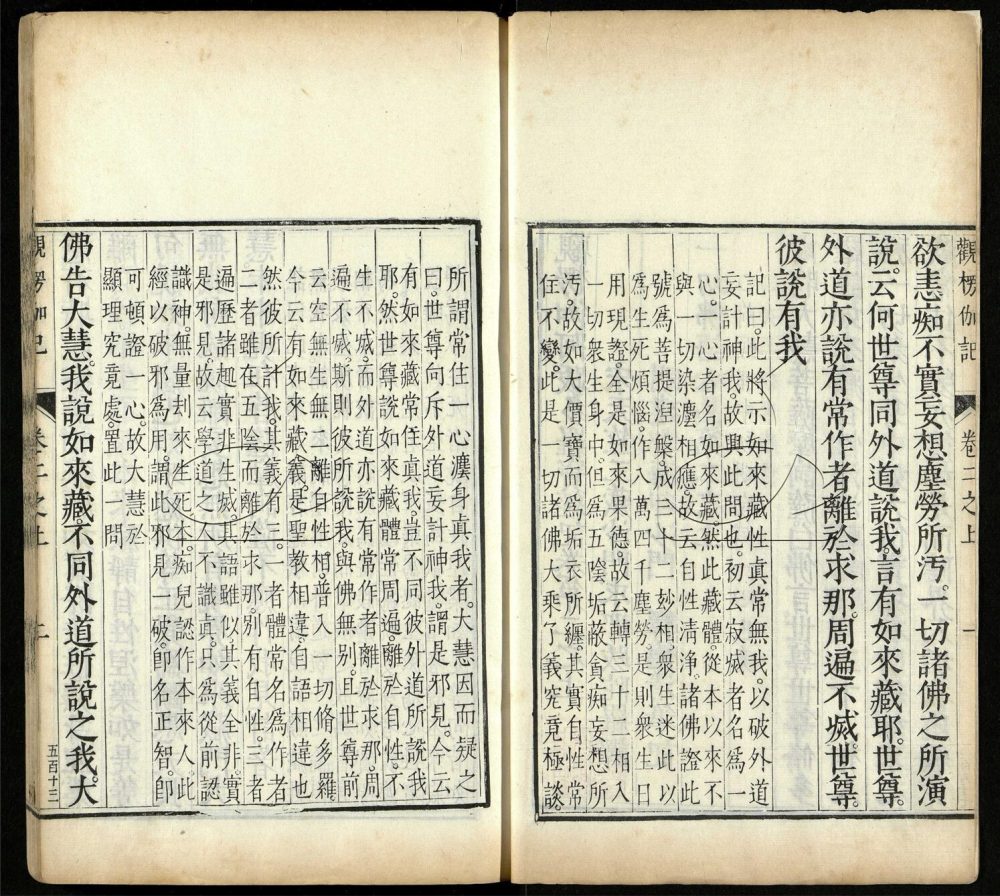 觀楞伽記 卷二之上 一
欲恚痴不實妄想塵勞所汚。一切諸佛之所演
說。云何世尊同外道說我。言有如來藏耶。世尊。
外道亦說有常作者離於求那。周遍不滅。世尊。
彼說有我
記曰。此將示如來藏性眞常無我。以破外道
妄計神我。故興此問也。初云寂滅者名爲一
心。一心者名如來藏。然此藏體。從本以來不
與一切染灋相應。故云自性清淨。諸佛證此
號爲菩提涅槃成三十二妙相。衆生迷此以
爲生死煩惱作八萬四千塵勞。是則衆生日
用現證。全是如來果德。故云轉三十二相入
一切衆生身中。但爲五陰垢蔽貪痴妄想所
汚。故如大價寶而爲垢衣所纏。其實自性常
住不變。此是一切諸佛大乘了義究竟極談
所謂常住一心灋身眞我者。大慧因而疑之
曰。世尊向斥外道妄計神我。謂是邪見。今云
有如來藏常住眞我。豈不同彼外道所說我
耶。然世尊說如來藏體常周遍。離自性。不
生不滅。而外道亦說有常作者離於求那。周
遍不滅。斯則彼所說我。與佛無別。且世尊前
云空無生無二離自性相。普入一切脩多羅。
今云有如來藏義。是聖教相違。自語相違也
然彼所計我。其義有三。一者體常名爲作者
二者雖在五陰而離於求那。別有自性。三者
遍歷諸趣實非生滅。其語雖似其義全非。實
是邪見。故云學道之人不識眞。只爲從前認
識神。無量刦來生死本。痴兒認作本來人。此
經以破邪爲用。謂此邪見一破。卽名正智。卽
可頓證一心。故大慧於
顯理究竟處。置此一問
佛告大慧。我說如來藏。不同外道所說之我。大
五百十三
觀楞伽記 卷二之上 二